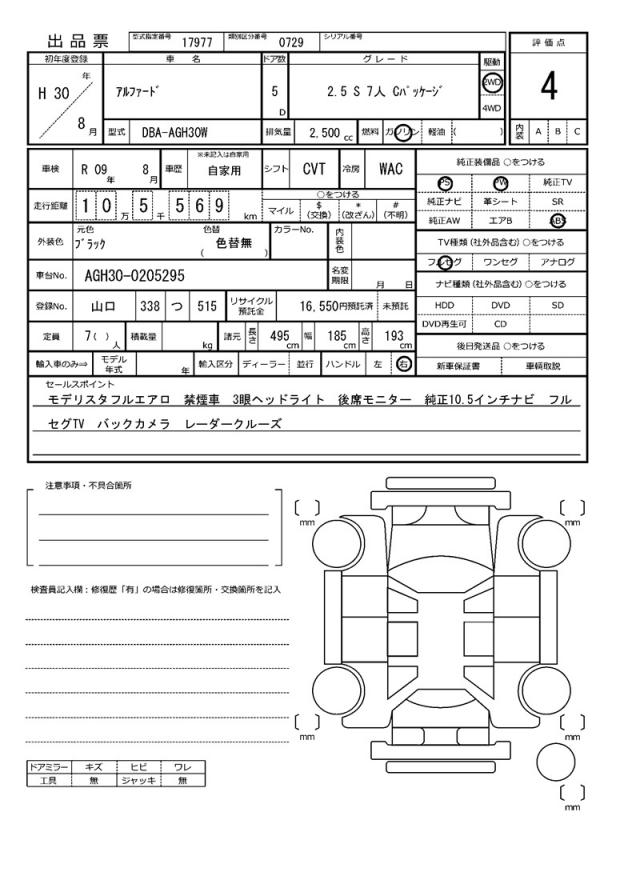 出品票 型式指定番号 17977 類別区分番号 0729 シリアル番号
初年度登録 車名 ドア数 グレード 駆動 評価点
H 30 年 8 月 アルファード 5 D 2.5 S 7人 Cパッケージ 2WD 4WD 4
型式 DBA-AGH30W 排気量 2,500 cc 燃料 ガソリン 軽油 ( ) 内装 A B C
車検 R 09 年 8 月 車歴 ※未記入は自家用 自家用 シフト CVT 冷房 WAC 純正装備品 ○をつける
PS PW 純正TV
走行距離 1 0 万 5 千 5 6 9 km ○をつける マイル $ (交換) * (改ざん) # (不明) 純正ナビ 革シート SR
純正AW エアB ABS
外装色 元色 ブラック 色替 ( 色替無 ) カラーNo. 内装色 TV種類 (社外品含む) ○をつける
フルセグ ワンセグ アナログ
車台No. AGH30-0205295 名変期限 月 日 ナビ種類 (社外品含む) ○をつける
登録No. 山口 338 つ 515 リサイクル預託金 16,550円預託済 未預託 HDD DVD SD
DVD再生可 CD
定員 7( ) 人 積載量 kg 諸元 長さ 495 cm 幅 185 cm 高さ 193 cm 後日発送品 ○をつける
輸入車のみ⇒ モデル年式 年 輸入区分 ディーラー 並行 ハンドル 左 右 新車保証書 車輌取説
セールスポイント
モデリスタフルエアロ 禁煙車 3眼ヘッドライト 後席モニター 純正10.5インチナビ フル
セグTV バックカメラ レーダークルーズ
注意事項・不具合箇所
mm mm
検査員記入欄：修復歴「有」の場合は修復箇所・交換箇所を記入
mm mm
ドアミラー キズ ヒビ ワレ
工具 無 ジャッキ 無
mm